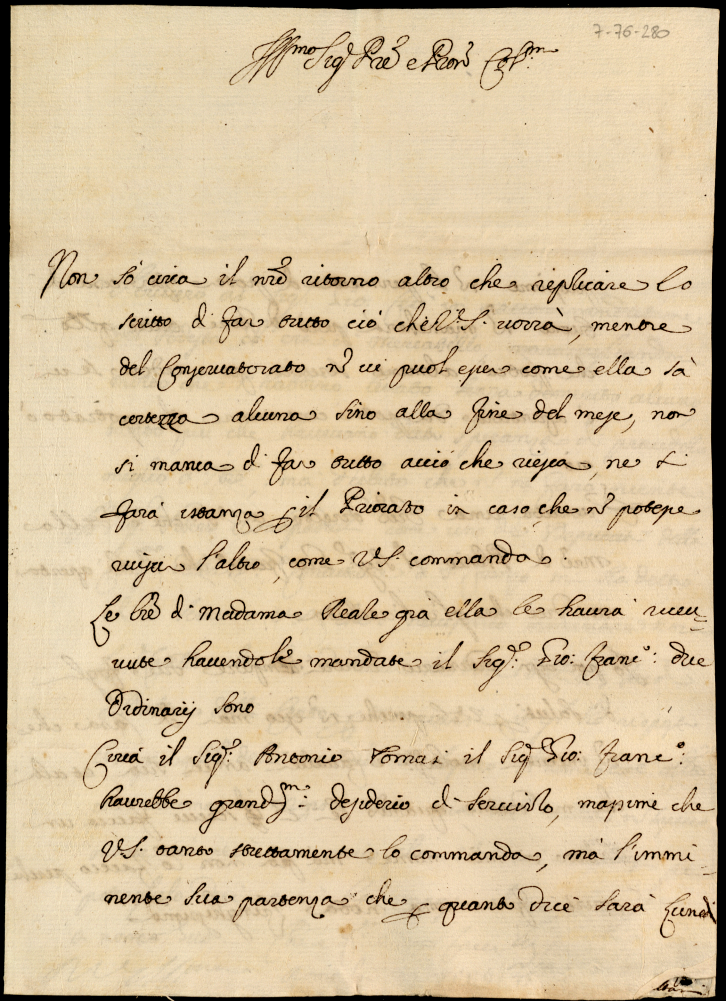 7-76-280
Ill.mo Sig.r Pre e Pron Col.mo
Non sò circa il nr̃o ritorno altro che replicare lo
scritto di far tutto ciò che V.S. vorrà, mentre
del Conservatorato nõ vi puol esser come ella sà
certezza alcuna sino alla fine del mese, non
si manca di far tutto acciò che riesca, ne si
farà istanza p il Priorato in caso, che nõ potesse
riuscir l'altro, come V.S. commanda.
Le lr̃e di Madama Reale già ella le haurà riceu-
vute havendole mandate il Sig.r Gio: Franc.o: due
Ordinarij sono
Circa il Sig.r Antonio Tomasi il Sig.r Gio: Franc.o:
haurebbe grand.mo: desiderio di servirlo, massime che
V.S. tanto strettamente lo commanda, mà l'immi-
nente sua partenza che p quanto dice sarà Lunedì